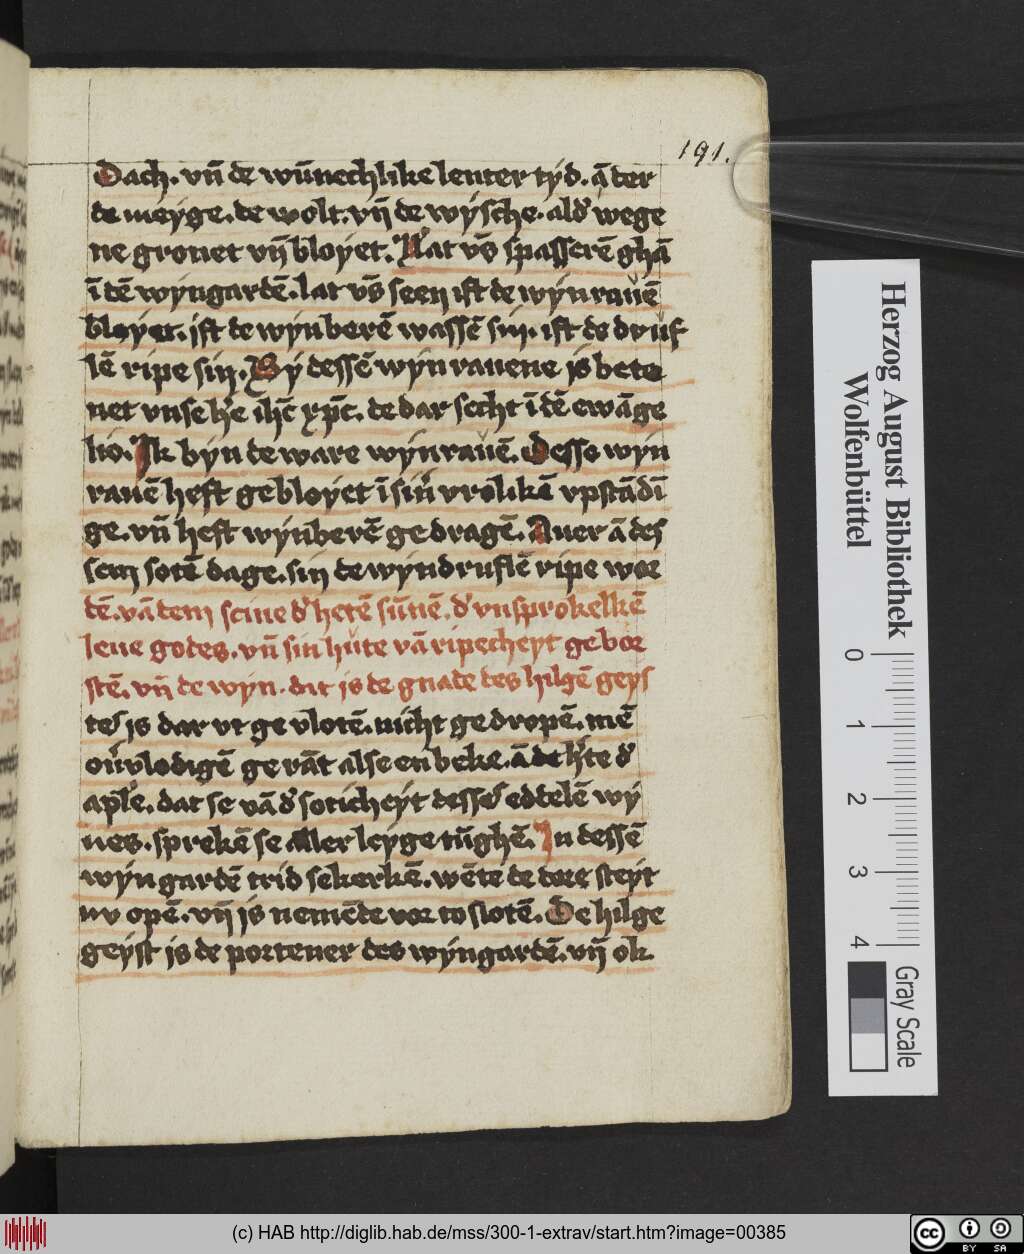 191.
Dach. vn̄ de wūnechlike lenter tyd. ā der
de meyge. de wolt. vn̄ de wysche. ald' wege
ne gronet vn̄ bloyet. Lat vs̄ spasserē ghā
ī dē wyngardē. lat vs̄ seen ift de wynrauē
bloyet. ift de wynberē wassē sin. ift de druf
lē ripe sin. By dessē wynrauene is beteke
net vnse h'e ih̄c xp̄c. de dar secht ī dē ewāge
lio. Ik byn de ware wynrauē. Desse wyn
rauē heft gebloyet ī sin' vrolikē vpstādī
ge. vn̄ heft wynberē gedragē. Auer ā des
sem sotē dage. sin de wyndruflē ripe wor
dē. vā dem scine d' hetē sūnē. d' vnsprokelkē
leue godes. vn̄ sin hute vā ripecheyt gebor
stē. vn̄ de wyn. dat is de gnade des hilgē geys
tes is dar vt gevlotē. nicht gedropē. mē
ou'vlodigē gerāt alse en beke. ā de h'te d'
aple. dat se vā d' soticheyt desses eddelē wy
nes. sprekē se allerleyge tūghē. In dessē
wyngardē trid sekerkē. wēte de dore steyt
nv opē. vn̄ is nemēde vor to slotē. De hilge
geyst is de portener des wyngardē. vn̄ ok
Herzog August Bibliothek
Wolfenbüttel
0
1
2
3
4
Gray Scale
(c) HAB http://diglib.hab.de/mss/300-1-extrav/start.htm?image=00385
cc
BY SA